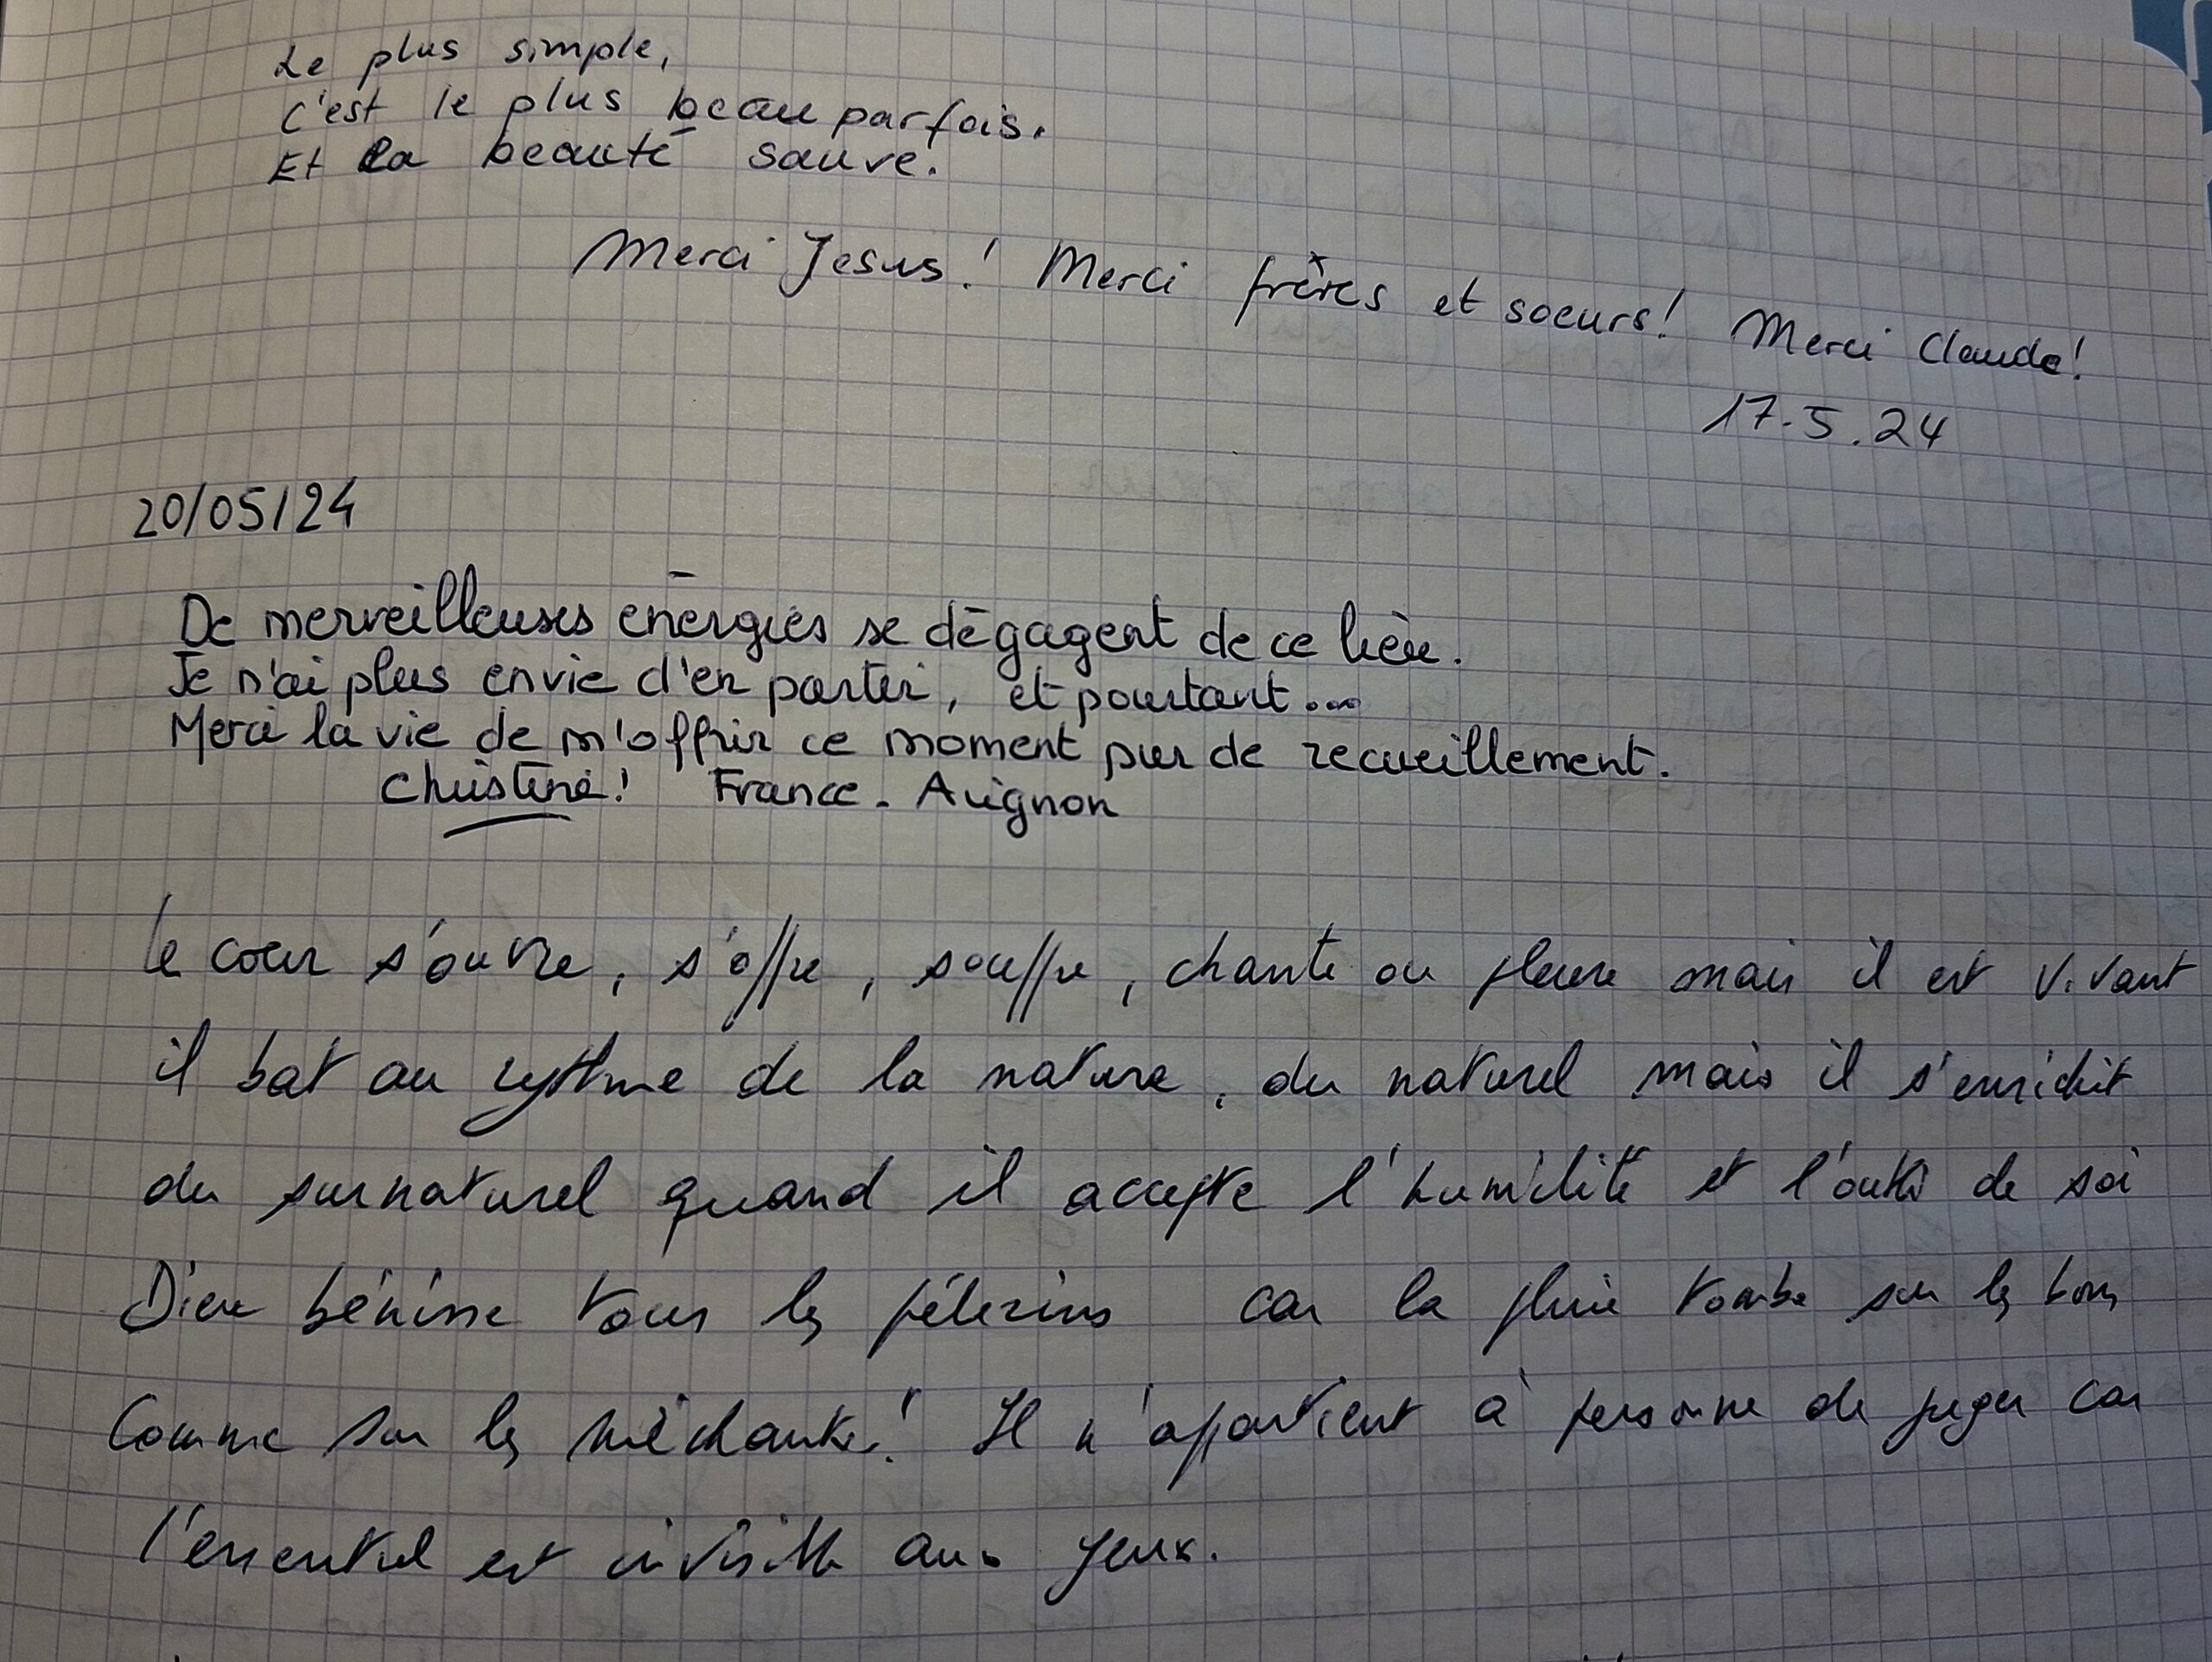 Le plus simple,
c'est le plus beau parfois.
Et la beauté sauve.
Merci Jesus! Merci frères et soeurs! Merci Claude!
17.5.24
20/05/24
De merveilleuses énergies se dégagent de ce lieu.
Je n'ai plus envie d'en partir, et pourtant...
Merci la vie de m'offrir ce moment pur de recueillement.
Christine! France - Avignon
le coeur s'ouvre, s'offre, souffre, chante ou pleure mais il est vivant
il bat au rythme de la nature, du naturel mais il s'enrichit
du surnaturel quand il accepte l'humilité et l'oubli de soi
Dieu bénisse tous les pélerins car la pluie tombe sur les bons
Comme sur les méchants! Il n'appartient à personne de juger car
l'essentiel est invisible aux yeux.